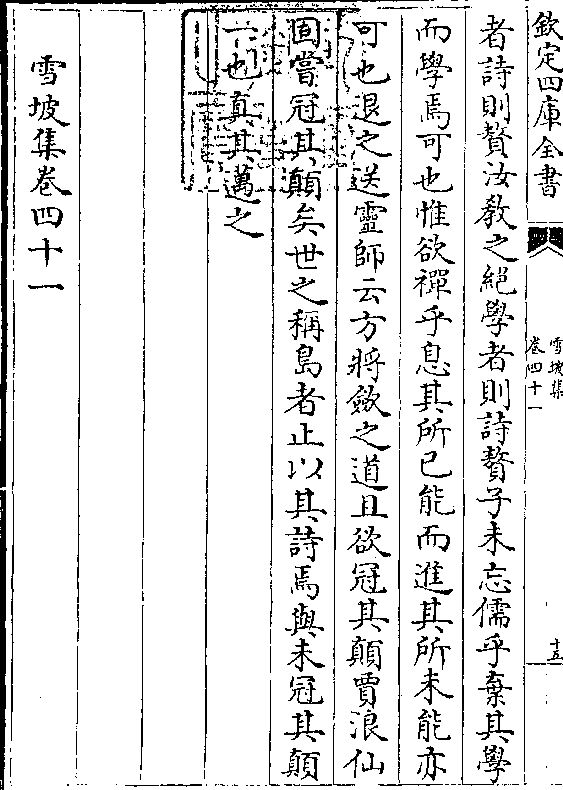 欽定四庫全書
雪坡集
卷四十一
十五
者詩則贅汝教之絕學者則詩贅子未忘儒乎棄其學
而學焉可也惟欲禪乎息其所已能而進其所未能亦
可也退之送靈師云方將斂之道且欲冠其顛賈浪仙
固嘗冠其顛矣世之稱島者止以其詩焉與未冠其顛
一也真其邁之
雪坡集卷四十一